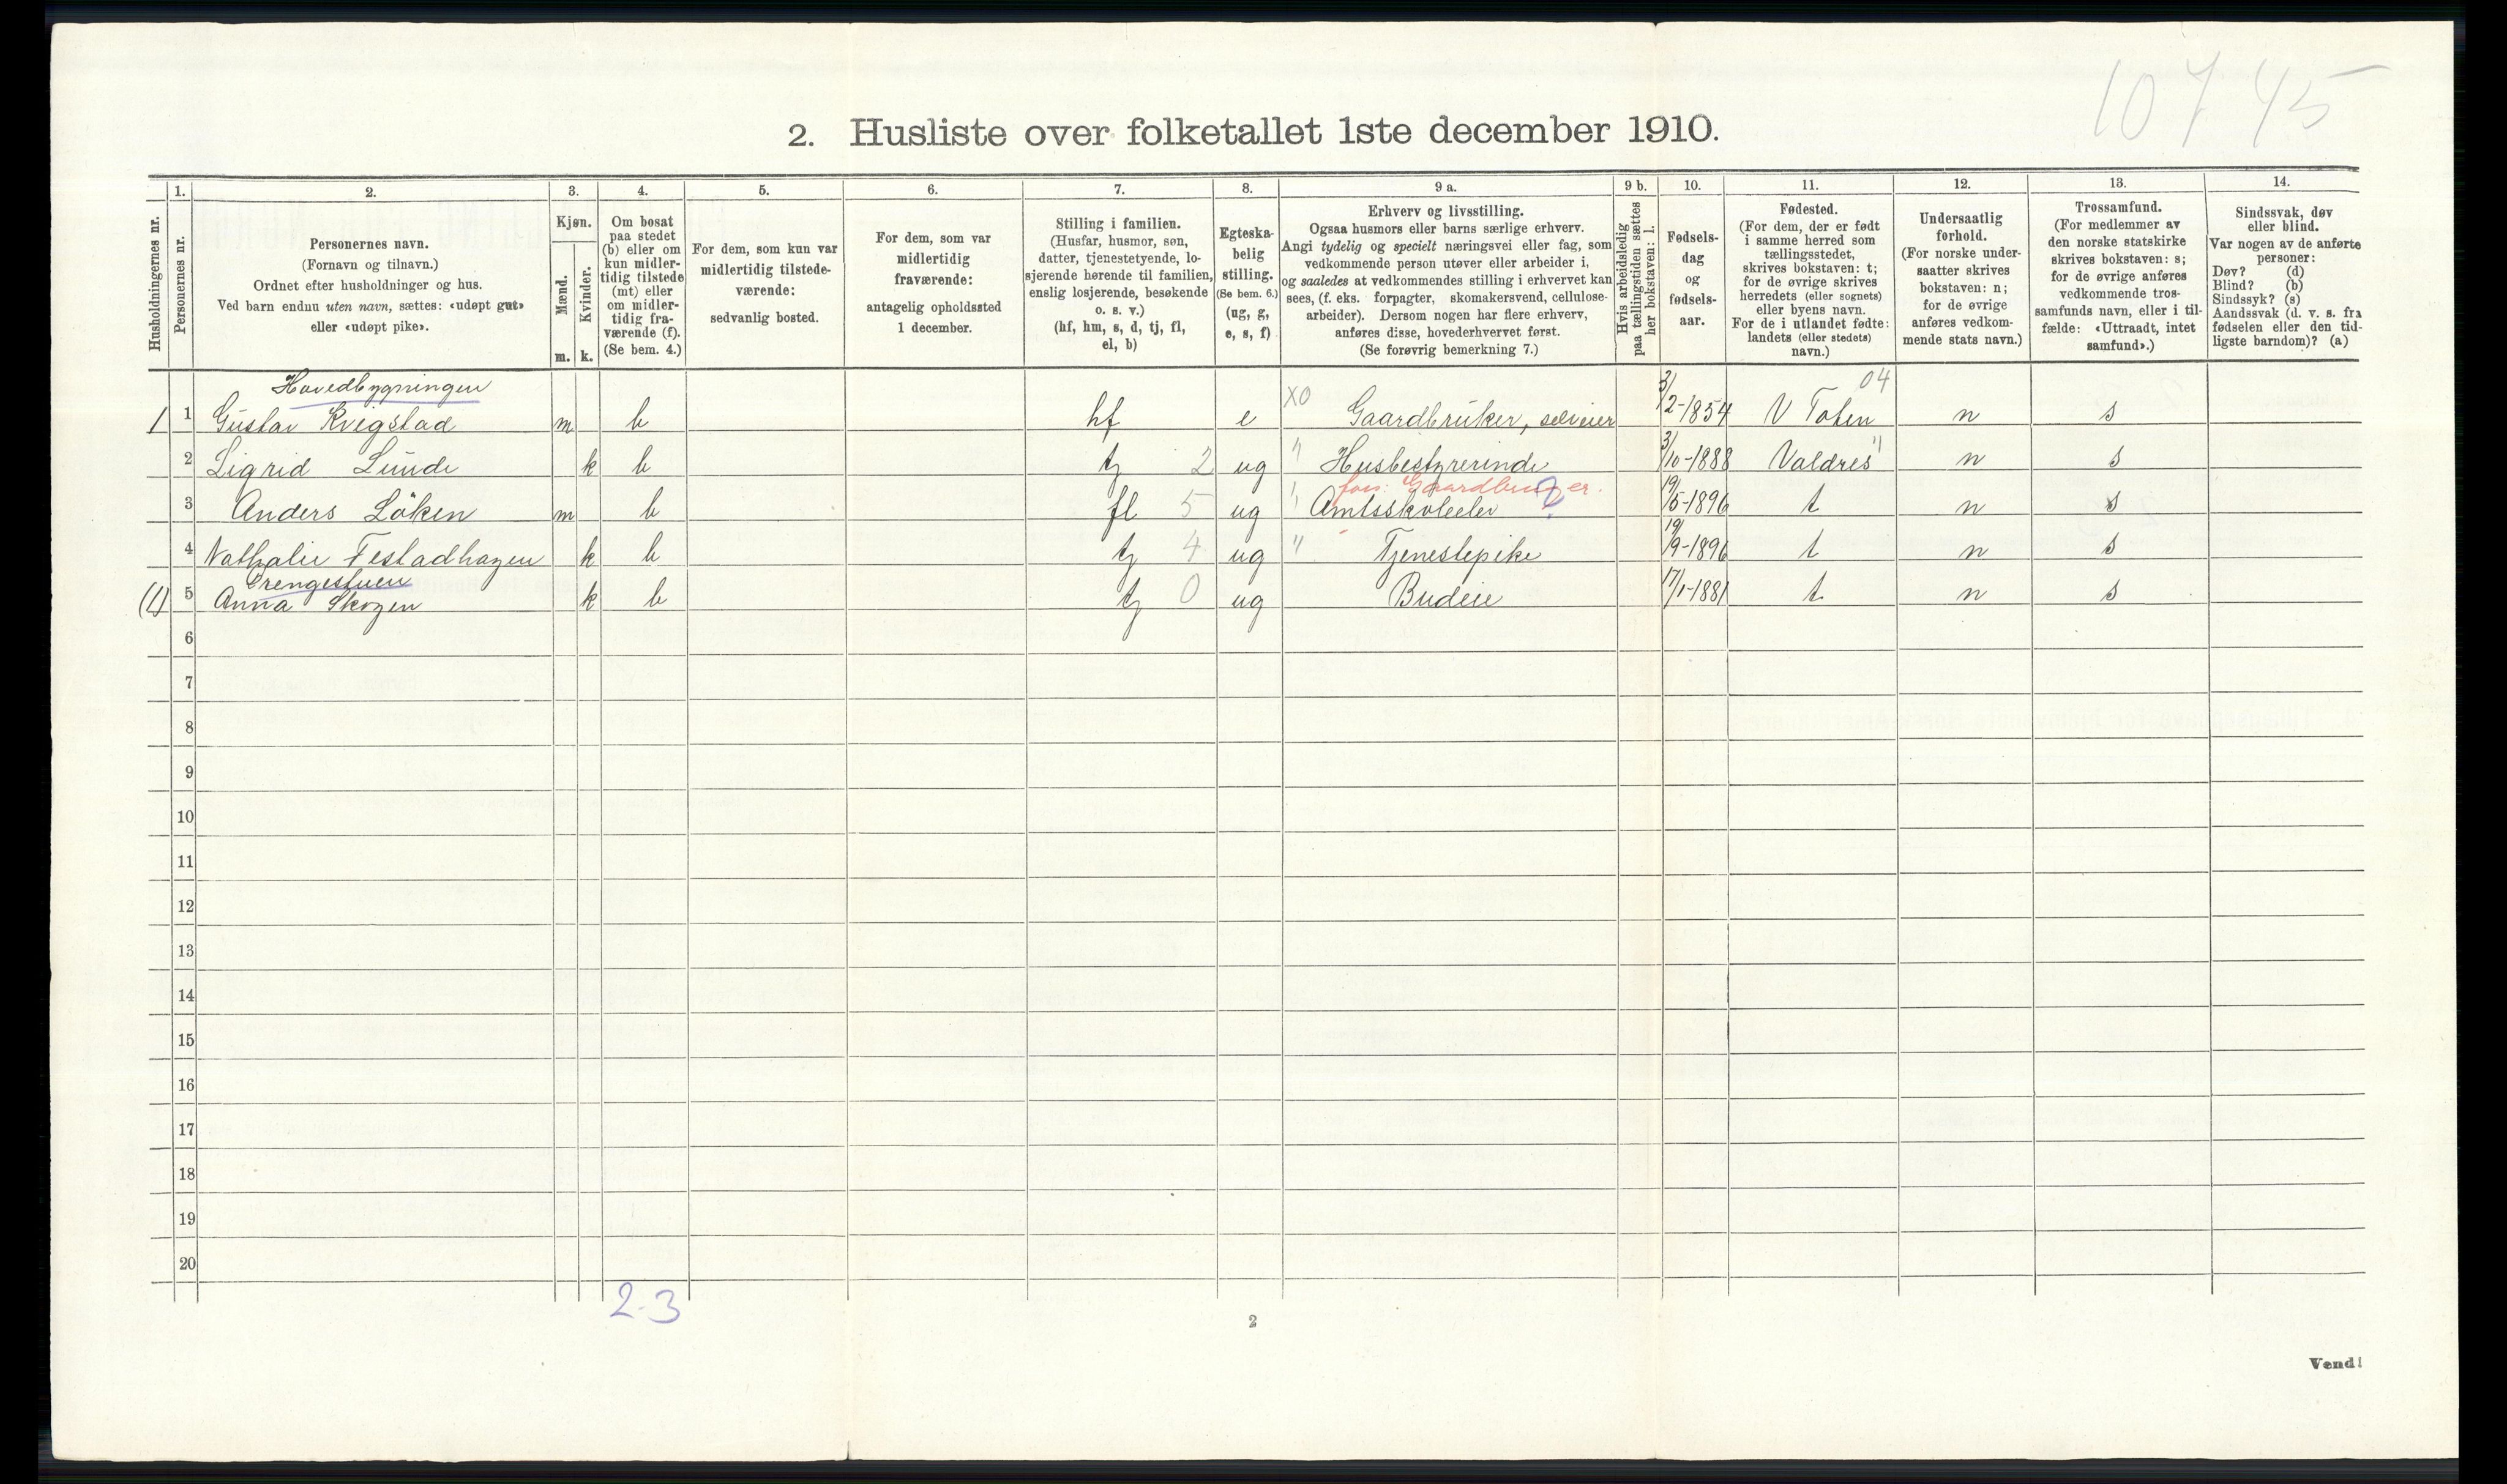 10745
2. Husliste over folketallet 1ste december 1910.
1. 2. 3. 4. 5. 6. 7. 8. 9 a. 9 b. 10. 11. 12. 13. 14.
Husholdningernes nr.
Personernes nr.
Personernes navn.
(Fornavn og tilnavn.)
Ordnet efter husholdninger og hus.
Ved barn endnu uten navn, sættes: «udøpt gut»
eller «udøpt pike».
Kjøn.
Mænd.
Kvinder.
m. k.
Om bosat
paa stedet
(b) eller om
kun midler-
tidig tilstede
(mt) eller
om midler-
tidig fra-
værende (f).
(Se bem. 4.)
For dem, som kun var
midlertidig tilstede-
værende:
sedvanlig bosted.
For dem, som var
midlertidig
fraværende:
antagelig opholdssted
1 december.
Stilling i familien.
(Husfar, husmor, søn,
datter, tjenestetyende, lo-
sjerende hørende til familien,
enslig losjerende, besøkende
o. s. v.)
(hf, hm, s, d, tj, fl,
el, b)
Egteska-
belig
stilling.
(Se bem. 6.)
(ug, g,
e, s, f)
Erhverv og livsstilling.
Ogsaa husmors eller barns særlige erhverv.
Angi tydelig og specielt næringsvei eller fag, som
vedkommende person utøver eller arbeider i,
og saaledes at vedkommendes stilling i erhvervet kan
sees, (f. eks. forpagter, skomakersvend, cellulose-
arbeider). Dersom nogen har flere erhverv,
anføres disse, hovederhvervet først.
(Se forøvrig bemerkning 7.)
Hvis arbeidsledig
paa tællingstiden sættes
her bokstaven: l.
Fødsels-
dag
og
fødsels-
aar.
Fødested.
(For dem, der er født
i samme herred som
tællingsstedet,
skrives bokstaven: t;
for de øvrige skrives
herredets (eller sognets)
eller byens navn.
For de i utlandet fødte:
landets (eller stedets)
navn.)
Undersaatlig
forhold.
(For norske under-
saatter skrives
bokstaven: n;
for de øvrige
anføres vedkom-
mende stats navn.)
Trossamfund.
(For medlemmer av
den norske statskirke
skrives bokstaven: s;
for de øvrige anføres
vedkommende tros-
samfunds navn, eller i til-
fælde: «Uttraadt, intet
samfund».)
Sindssvak, døv
eller blind.
Var nogen av de anførte
personer:
Døv? (d)
Blind? (b)
Sindssyk? (s)
Aandssvak (d. v. s. fra
fødselen eller den tid-
ligste barndom)? (a)
Hovedbygningen 04
1 1 Gustav Kvigstad m b hf e X0 Gaardbruker, selveier 3/2-1854 V Toten n s
2 Sigrid Lunde k b tj 2 ug " Husbestyrerinde 3/10-1888 Valdres " n s
fors: Gaardbruger.
3 Anders Löken m b fl 5 ug " Amtsskoleelev ? 19/5-1896 t n s
4 Nathalie Festadhagen k b tj 4 ug " Tjenestepike 19/9-1896 t n s
Drengestuen
(1) 5 Anna Skogen k b tj 0 ug Budeie 17/1-1881 t n s
6
7
8
9
10
11
12
13
14
15
16
17
18
19
20
2-3
2
Vend!